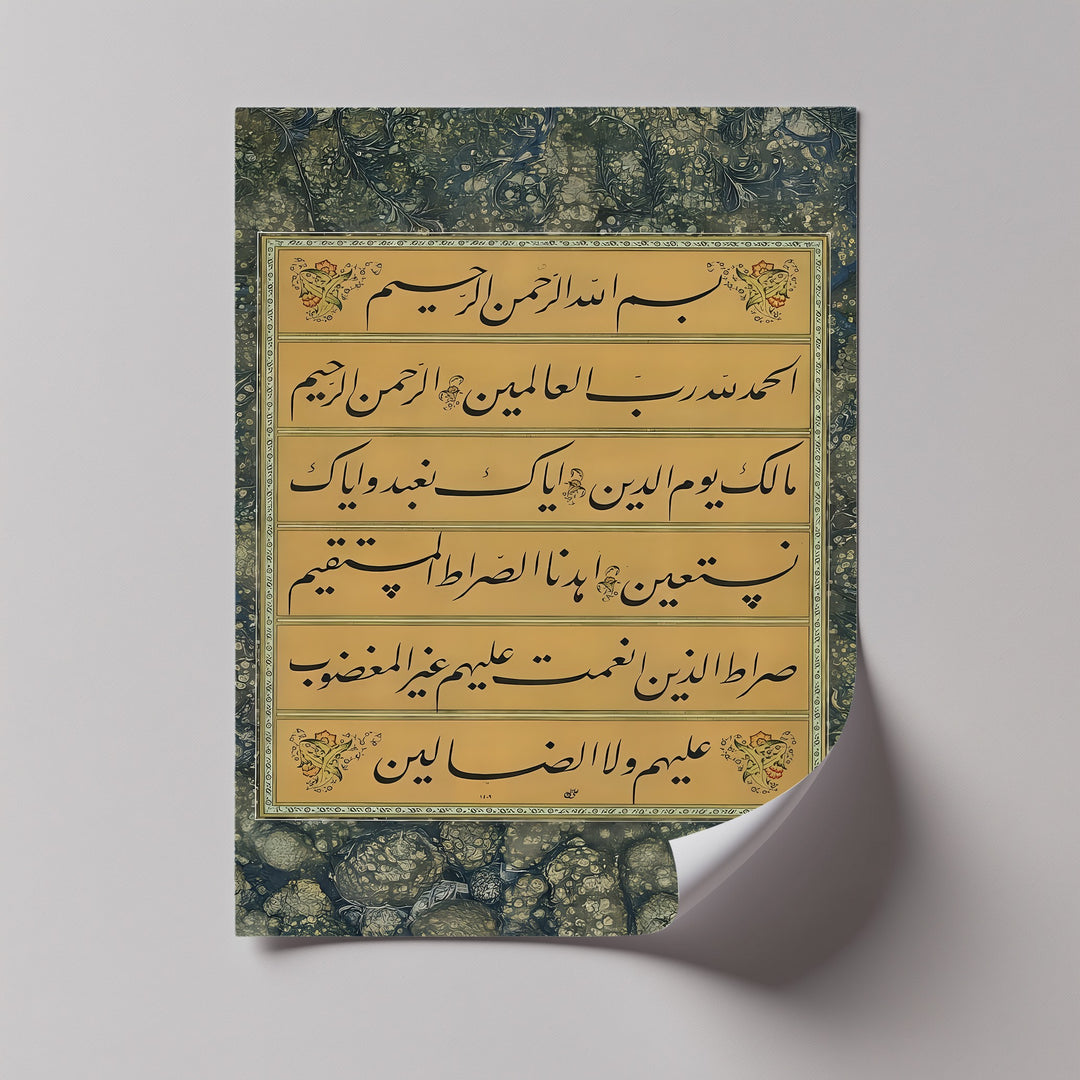 بسم الله الرّحمن الرّحيم
الحمد لله ربّ العالمين الرّحمن الرّحيم
مالك يوم الدين اياك نعبد واياك
نستعين اهدنا الصّراط المستقيم
صراط الذين انعمت عليهم غير المغضوب
عليهم ولا الضالين
١٤٠٦